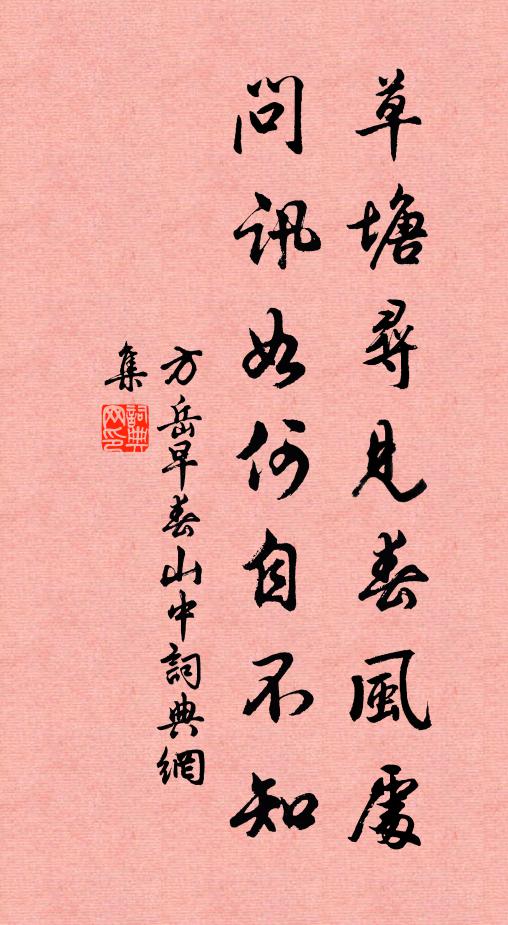 草塘尋見春風處
問訊如何自不知
方岳早春山中詞典網
集
詞典
网印